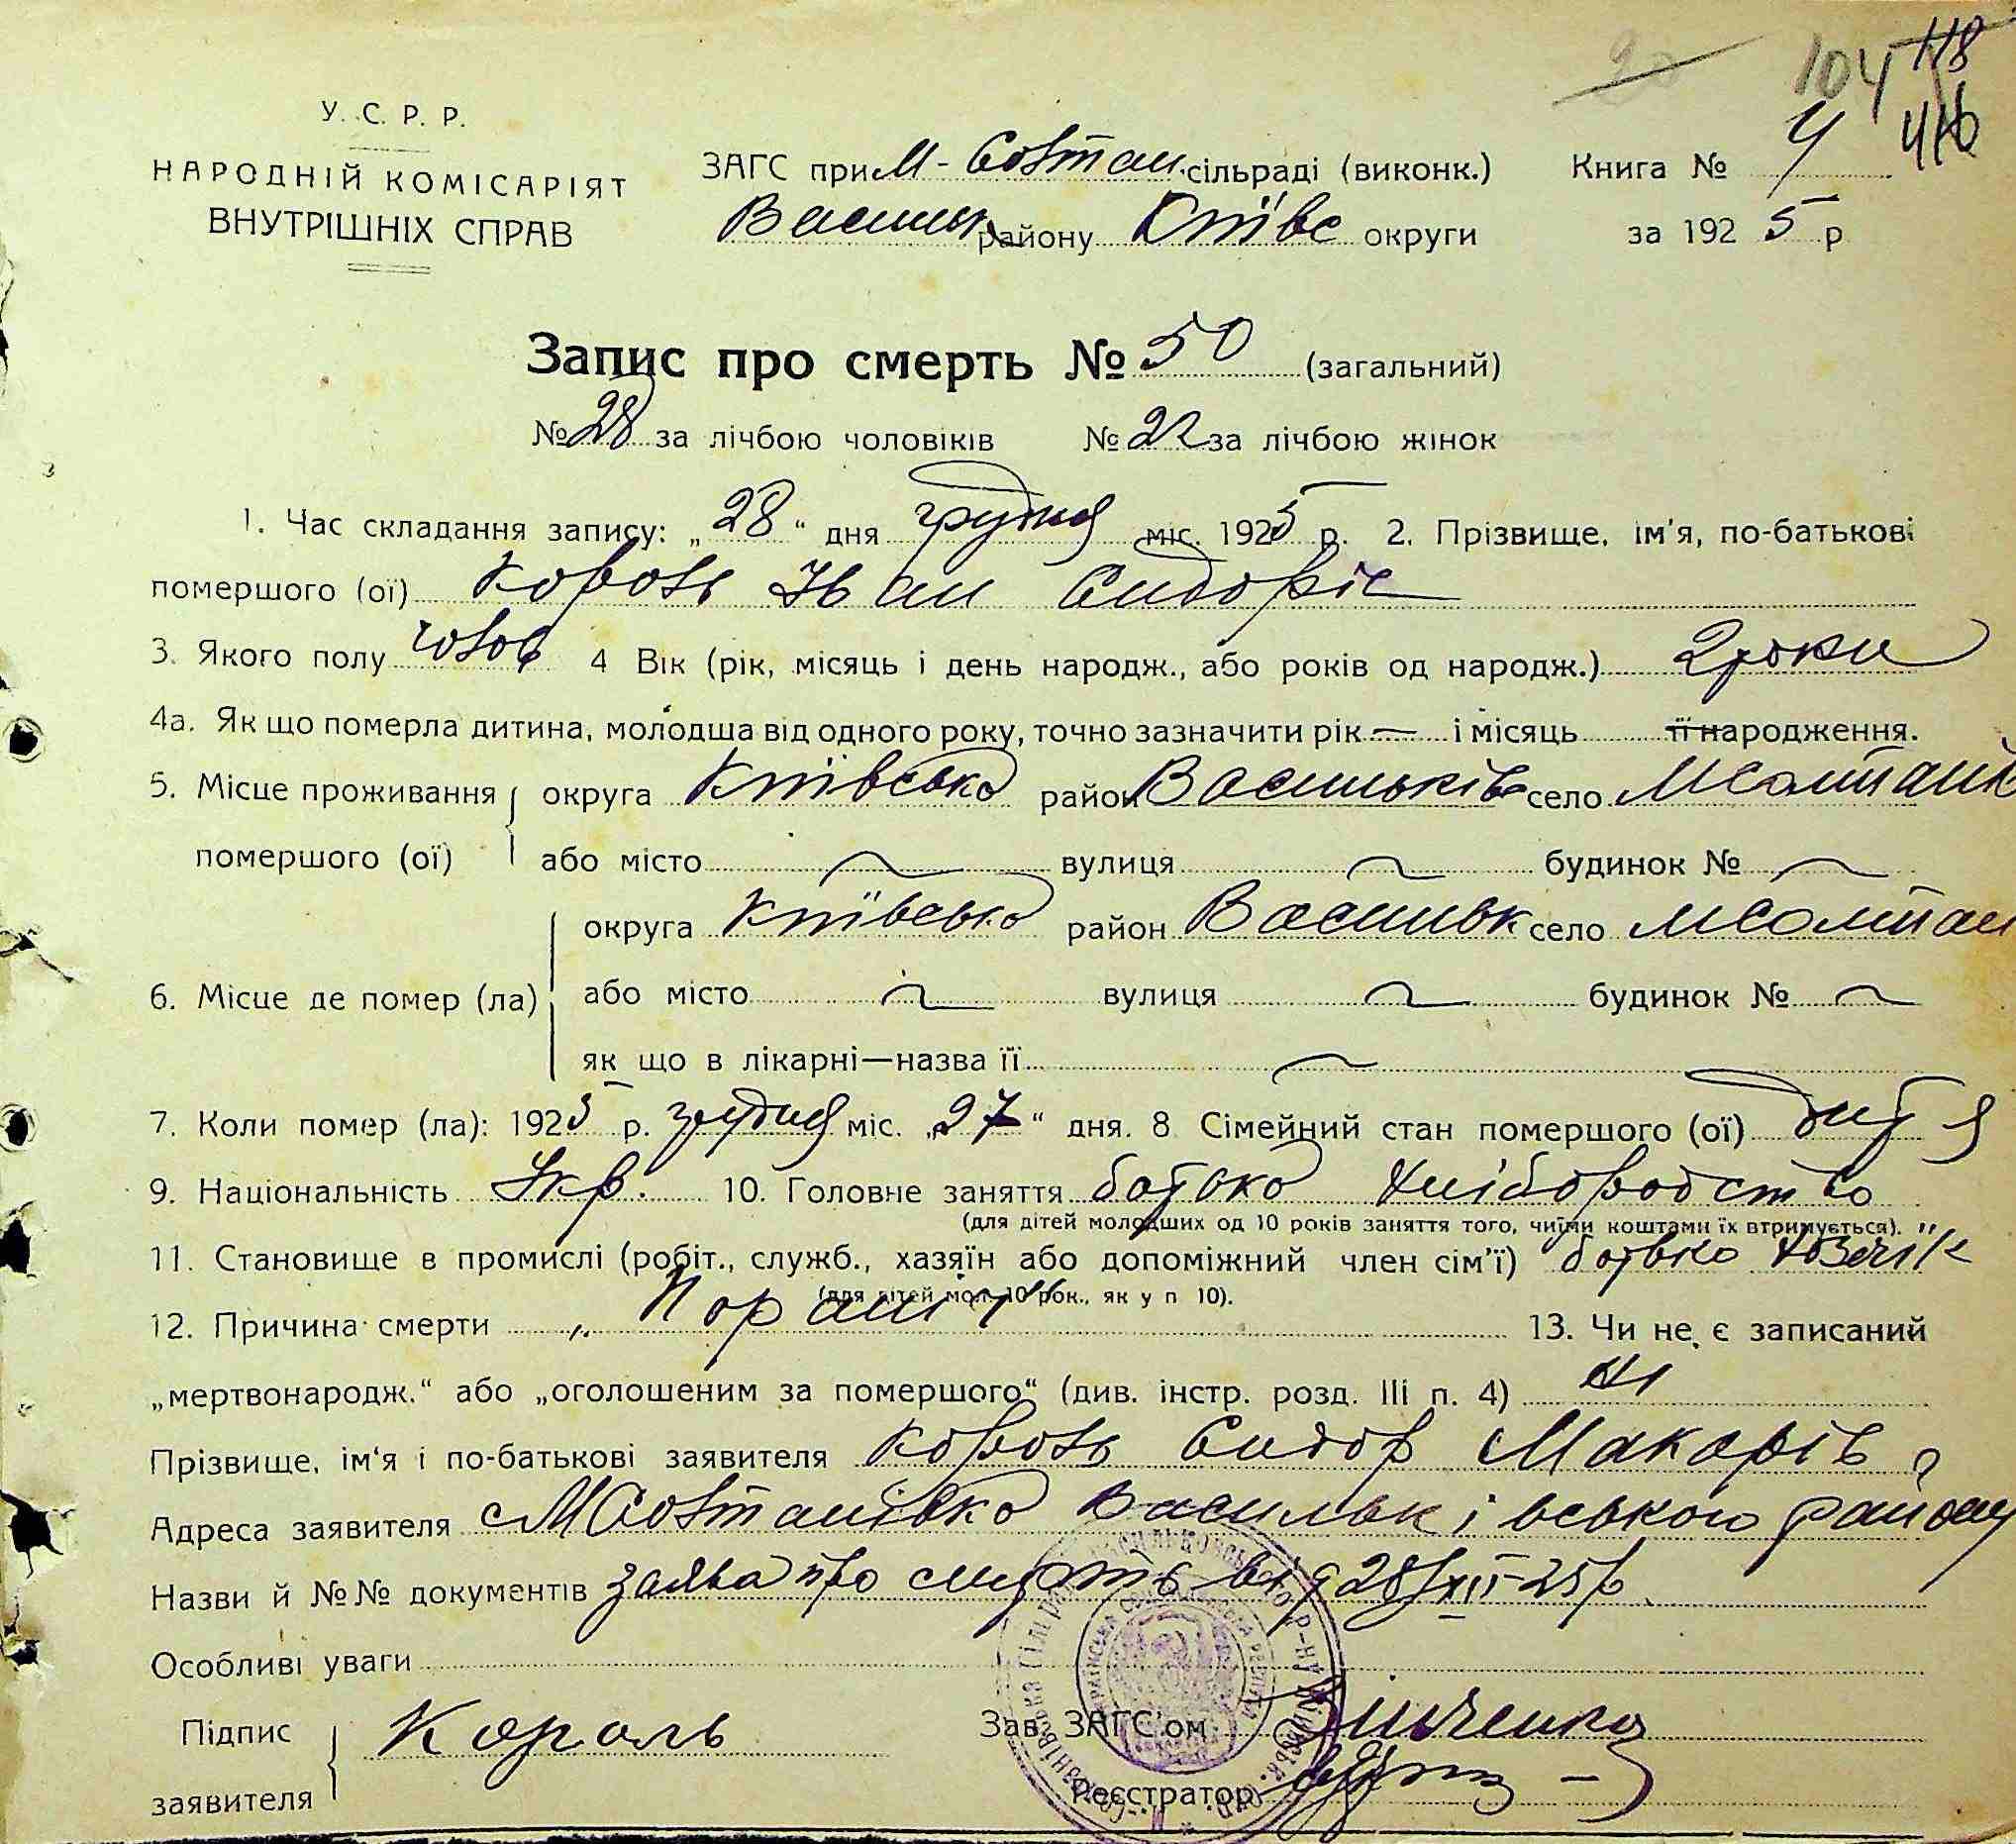 20 104 118
416
У. С. Р. Р.
НАРОДНІЙ КОМІСАРІЯТ
ВНУТРІШНІХ СПРАВ
ЗАГС при М-Солтан. сільраді (виконк.)
Васильк району Київс округи
Книга № 4
за 1925 р
Запис про смерть № 50 (загальний)
№ 28 за лічбою чоловіків № 22 за лічбою жінок
1. Час складання запису: „28“ дня грудня міс. 1925 р. 2. Прізвище, ім'я, по-батькові
помершого (ої) Король Іван Сидорів
3. Якого полу чолов 4 Вік (рік, місяць і день народж., або років од народж.) 2 роки
4а. Як що померла дитина, молодша від одного року, точно зазначити рік — і місяць її народження.
5. Місце проживання помершого (ої) округа Київсько район Васильків село МСолтанів
або місто вулиця будинок №
6. Місце де помер (ла) округа Київсько район Васильк село МСолтан
або місто вулиця будинок №
як що в лікарні—назва її
7. Коли помер (ла): 1925 р. грудня міс. „27“ дня. 8 Сімейний стан помершого (ої) дитя
9. Національність Укр. 10. Головне заняття батько хліборобство
(для дітей молодших од 10 років заняття того, чиїми коштами їх втримується).
11. Становище в промислі (робіт., служб., хазяїн або допоміжний член сім'ї) батько
(для дітей мол. 10 рок., як у п 10).
12. Причина смерти 13. Чи не є записаний
„мертвонародж.“ або „оголошеним за помершого“ (див. інстр. розд. III п. 4) ні
Прізвище, ім'я і по-батькові заявителя Король Сидор Макарів
Адреса заявителя МСолтанівко Васильківського району
Назви й №№ документів заява про смерть від 28/XII-25р
Особливі уваги
Підпис заявителя Король
Зав. ЗАГС'ом
Реєстратор